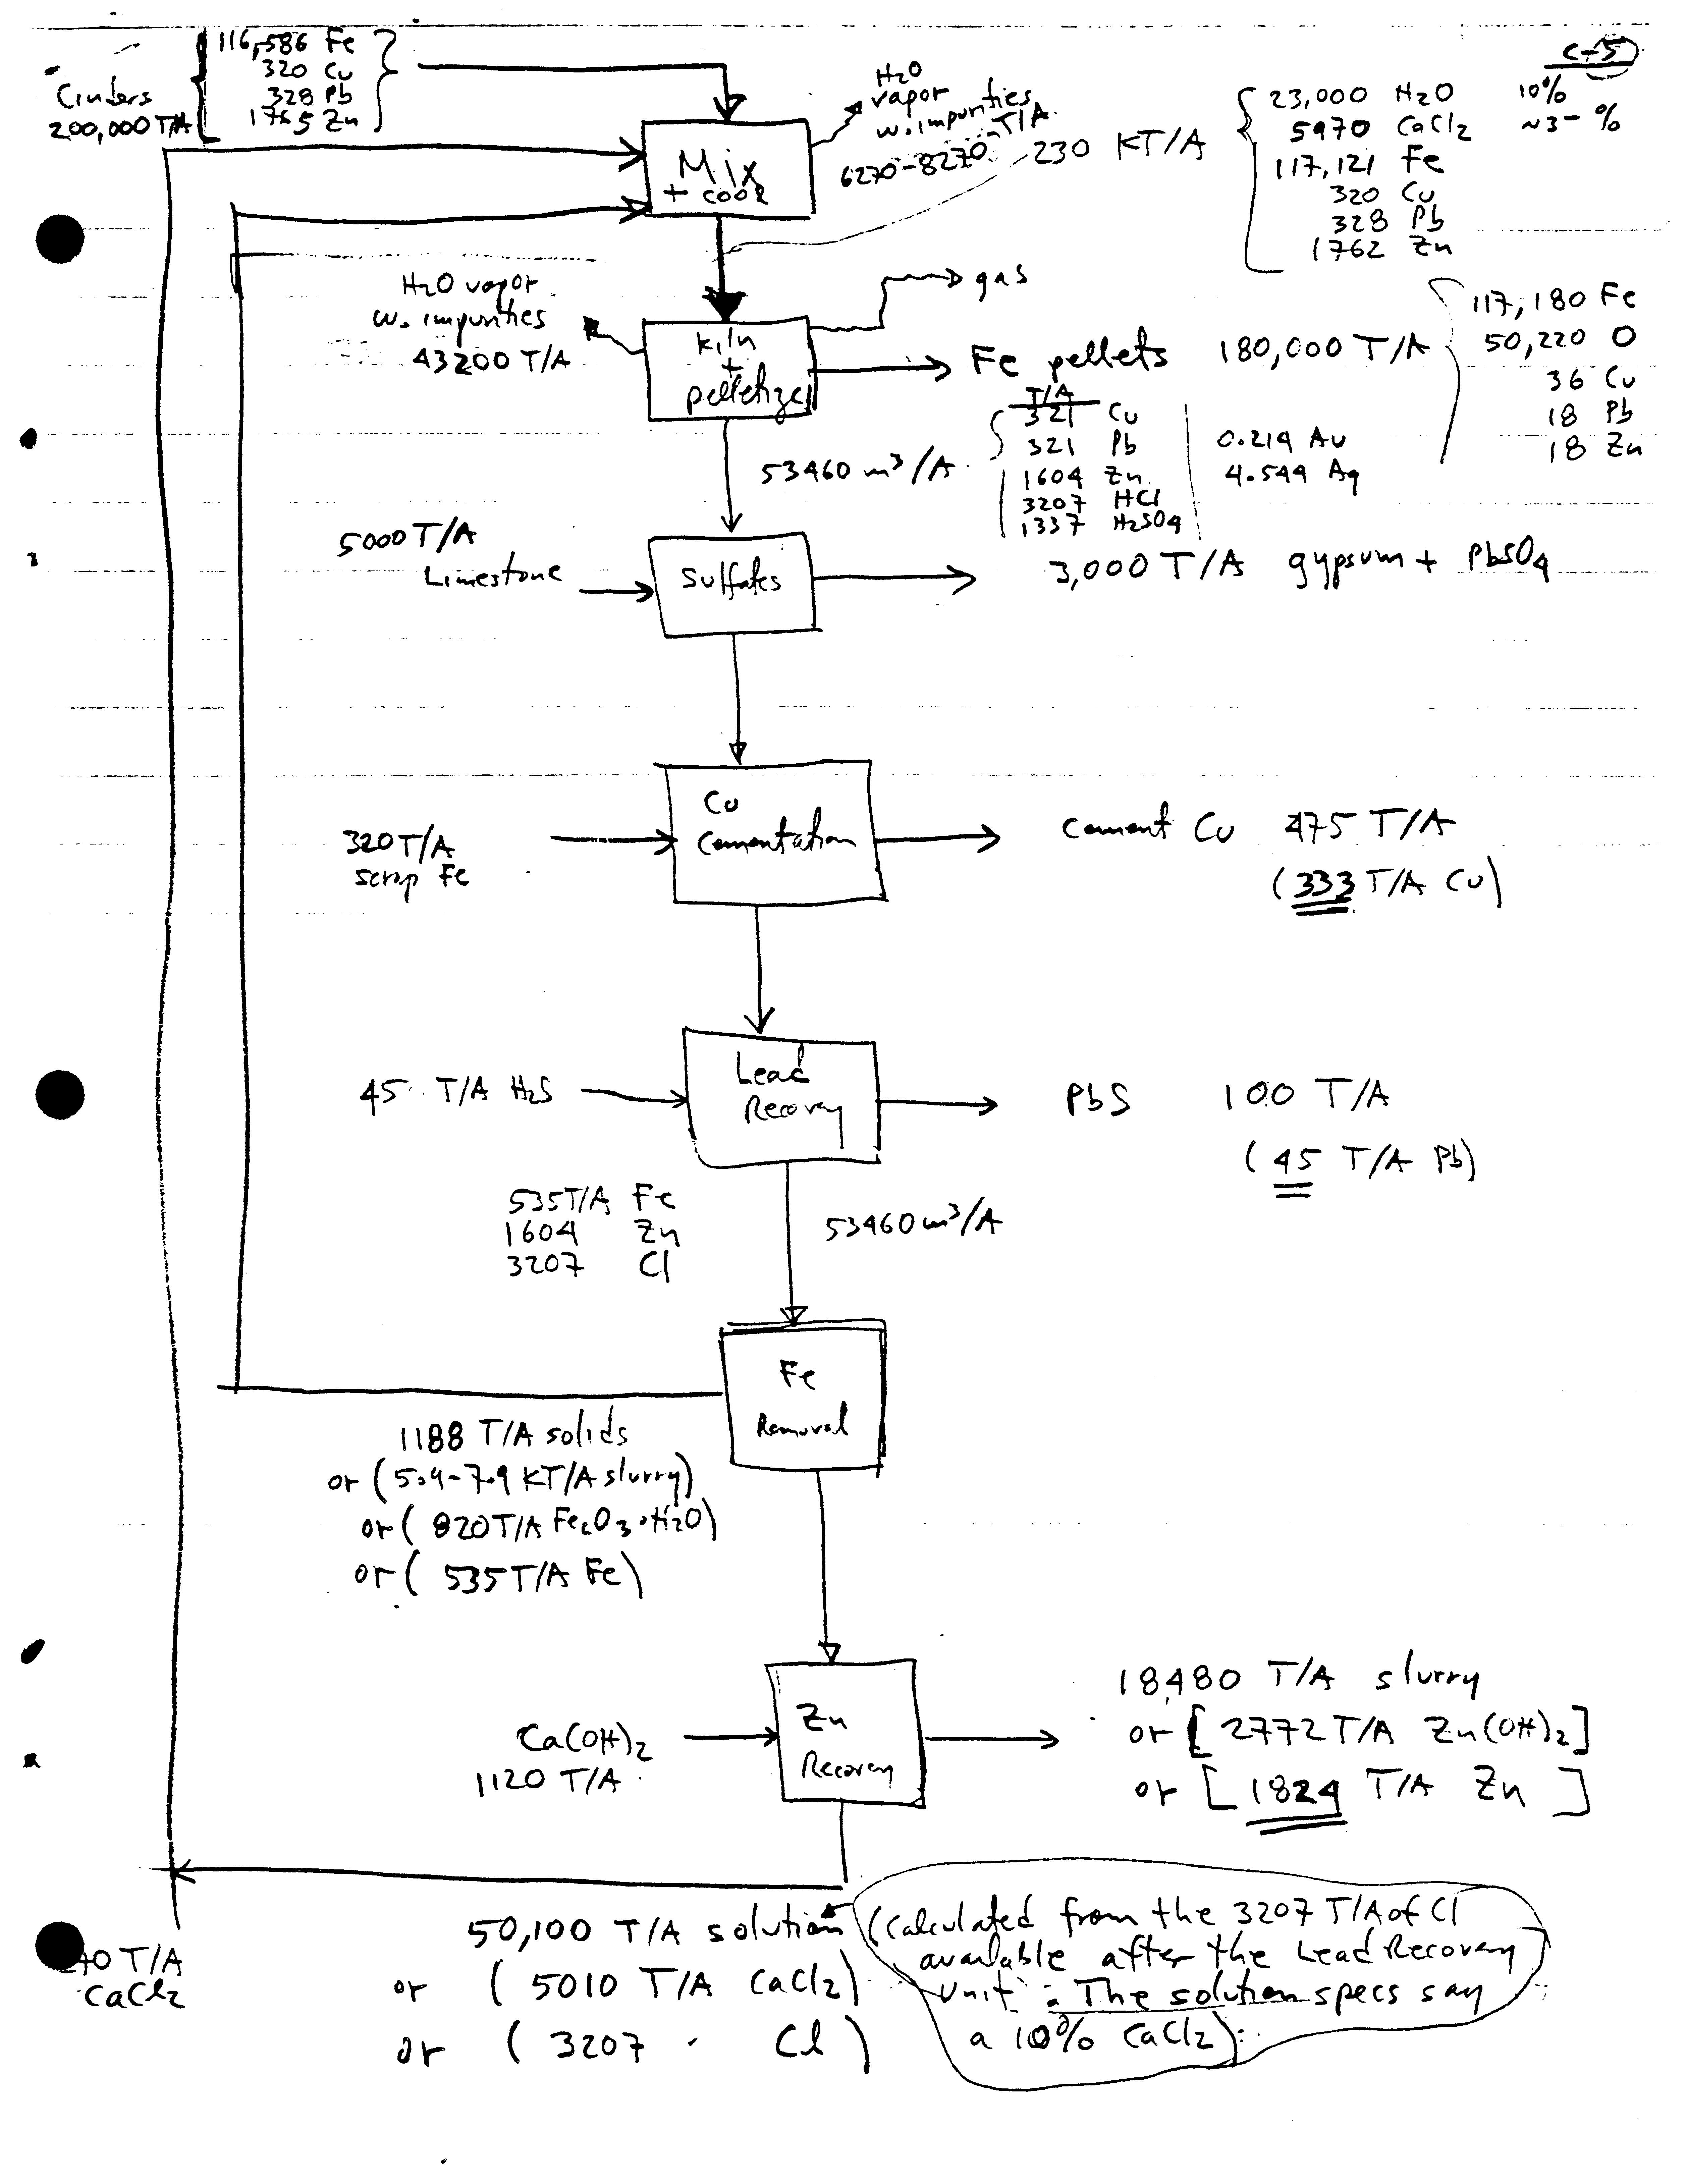 C-5
116,586 Fe
320 Cu
328 Pb
1765 Zn
Cinders
200,000 T/A
Mix
+ cook
H2O
vapor
w. impurities
6270-8270 T/A
230 KT/A
23,000 H2O 10%
5970 CaCl2 ~3- %
117,121 Fe
320 Cu
328 Pb
1762 Zn
H2O vapor
w. impurities
43200 T/A
kiln
+
pelletize
gas
Fe pellets 180,000 T/A
117,180 Fe
50,220 O
36 Cu
18 Pb
18 Zn
53460 m3/A
T/A
321 Cu
321 Pb
1604 Zn
3207 HCl
1337 H2SO4
0.214 Au
4.544 Ag
5000 T/A
Limestone
Sulfates
3,000 T/A gypsum + PbSO4
320 T/A
scrap Fe
Cu
Cementation
cement Cu 475 T/A
(333 T/A Cu)
45 T/A H2S
Lead
Recovery
PbS 100 T/A
(45 T/A Pb)
535 T/A Fe
1604 Zn
3207 Cl
53460 m3/A
Fe
Removal
1188 T/A solids
or (5.9-7.9 KT/A slurry)
or (820 T/A Fe2O3·H2O)
or (535 T/A Fe)
Ca(OH)2
1120 T/A
Zn
Recovery
18,480 T/A slurry
or [2772 T/A Zn(OH)2]
or [1824 T/A Zn]
40 T/A
CaCl2
50,100 T/A solution
or (5010 T/A CaCl2)
or (3207 · Cl)
(Calculated from the 3207 T/A of Cl
available after the Lead Recovery
Unit. The solution specs say
a 10% CaCl2).